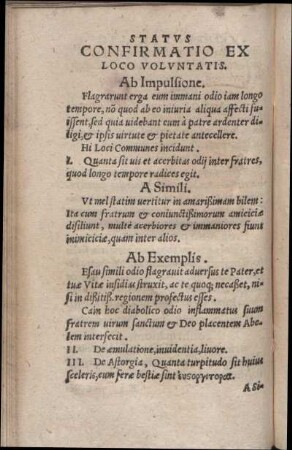 STATVS
CONFIRMATIO EX
LOCO VOLVNTATIS.
Ab Impulsione.
Flagrarunt erga eum immani odio iam longo
tempore, nō quod ab eo iniuria aliqua affecti fu-
issent, sed quia uidebant eum à patre ardenter di-
ligi, & ipsis uirtute & pietate antecellere.
Hi Loci Communes incidunt.
I. Quanta sit uis et acerbitas odij inter fratres,
quod longo tempore radices egit.
A Simili.
Vt mel statim uertitur in amarissimam bilem:
Ita cum fratrum & coniunctissimorum amiciciæ
disiliunt, multò acerbiores & immaniores fiunt
inimiciciæ, quam inter alios.
Ab Exemplis.
Esau simili odio flagrauit aduersus te Pater, et
tuæ Vitæ insidias struxit, ac te quoq; necasset, ni-
si in dissitiss. regionem profectus esses.
Cain hoc diabolico odio inflammatus suum
fratrem uirum sanctum & Deo placentem Abe-
lem intersecit.
II. De æmulatione, inuidentia, liuore.
III. De Astorgia, Quanta turpitudo sit huius
sceleris, cum feræ bestiæ sint
A Si-